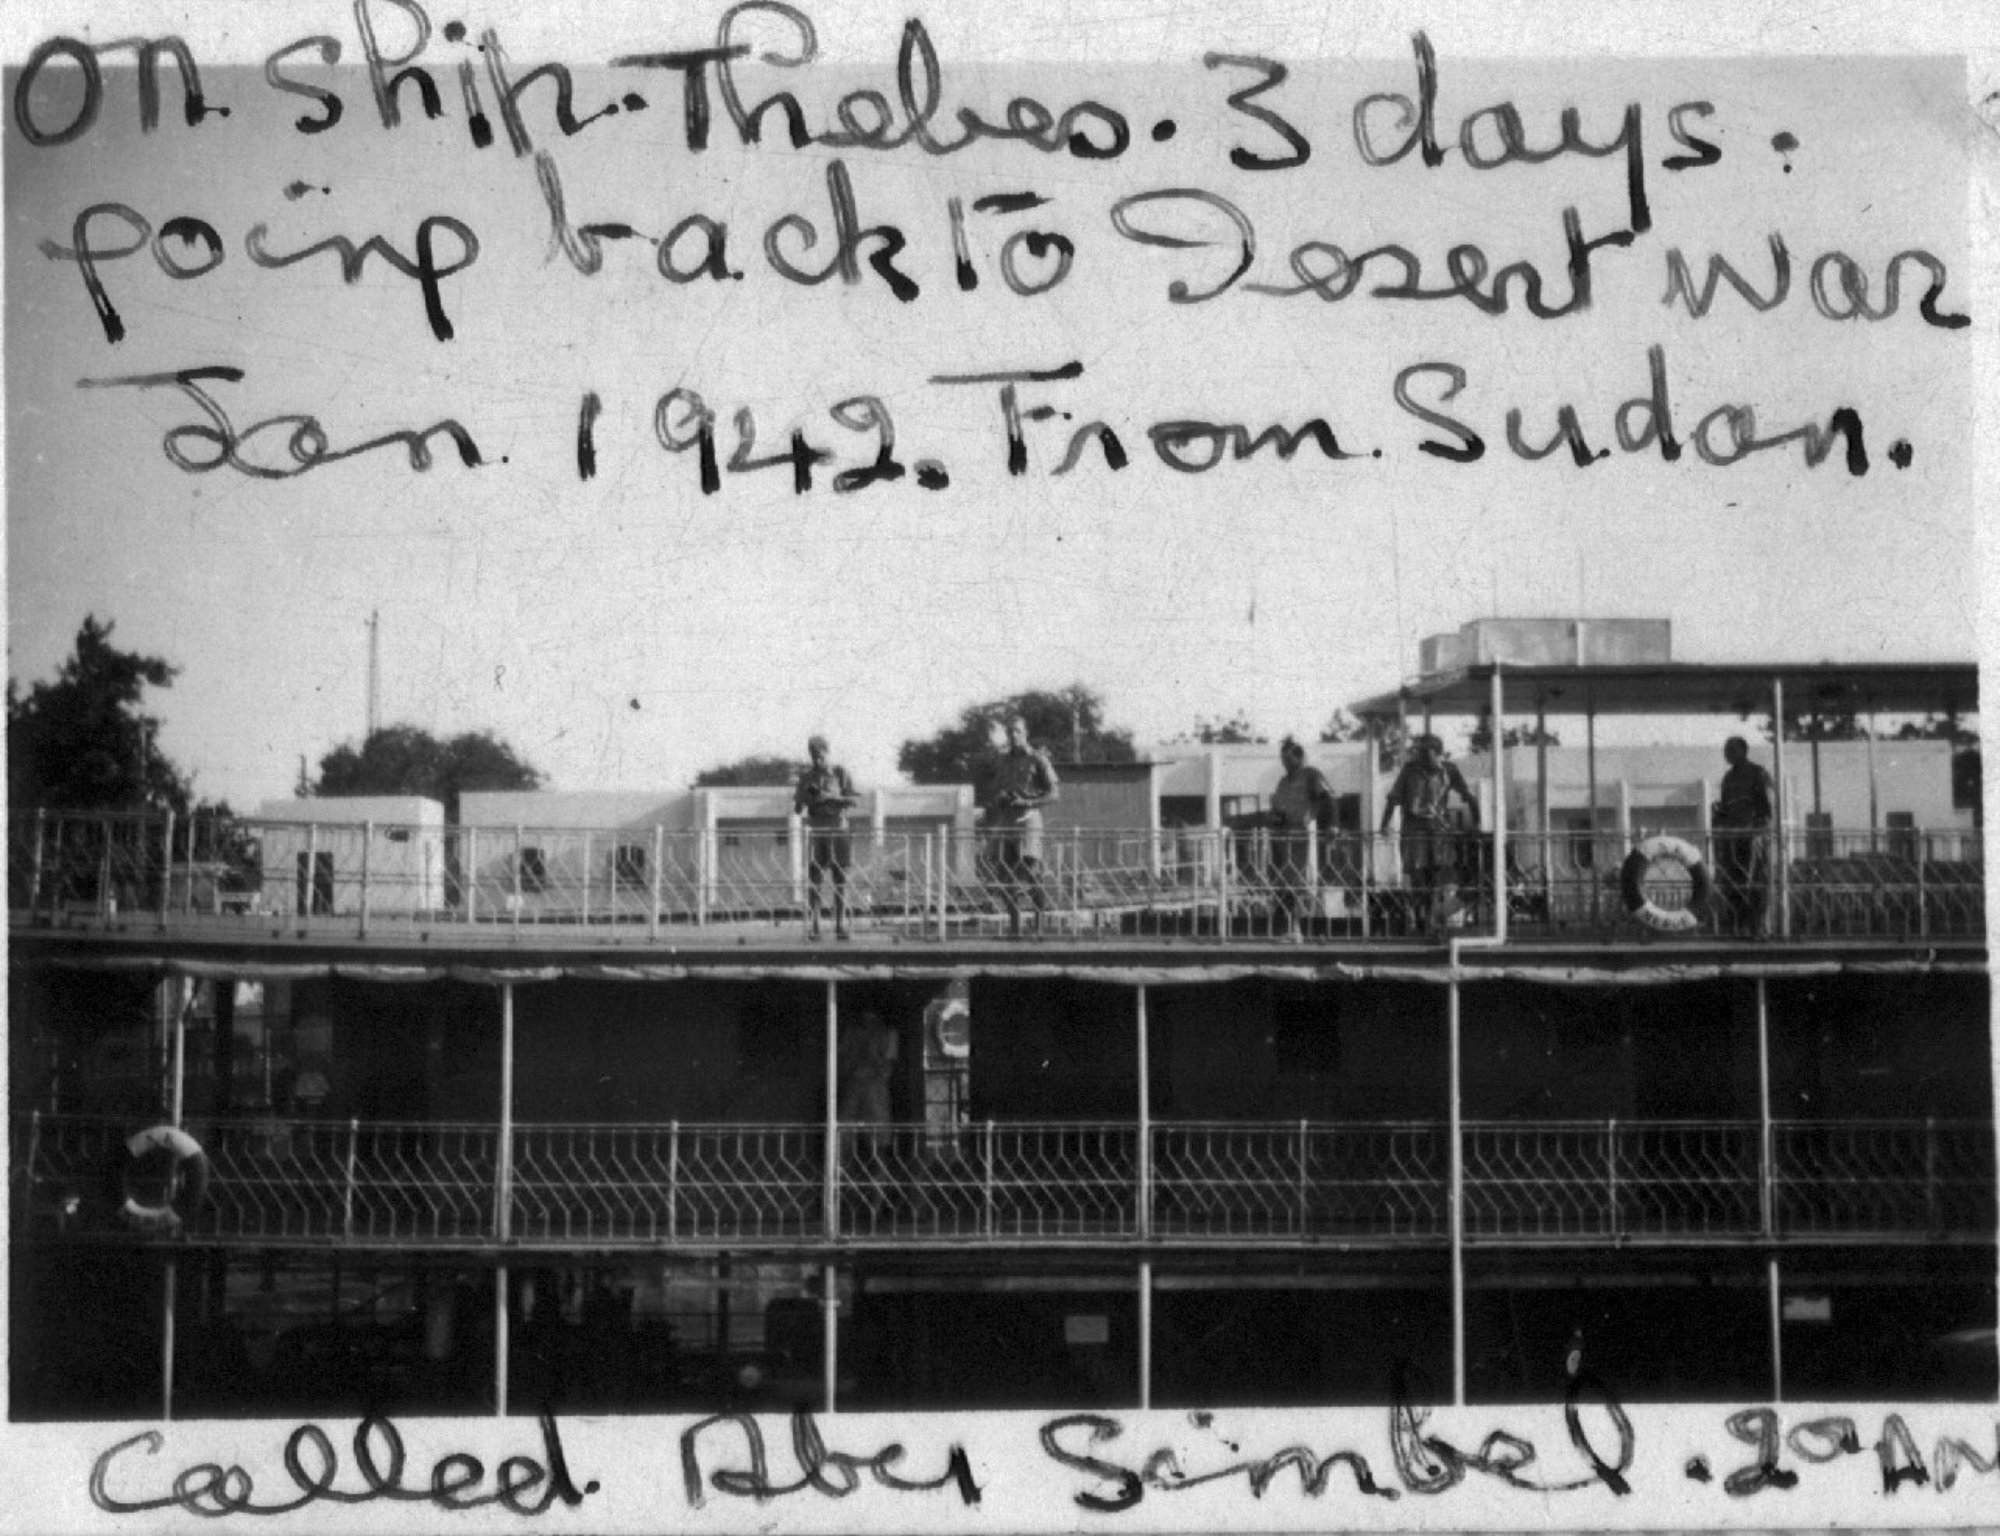 On Ship. Thebes. 3 days.
going back To Desert War
Jan. 1942. From. Sudan.
Called. Abu Simbel. 2